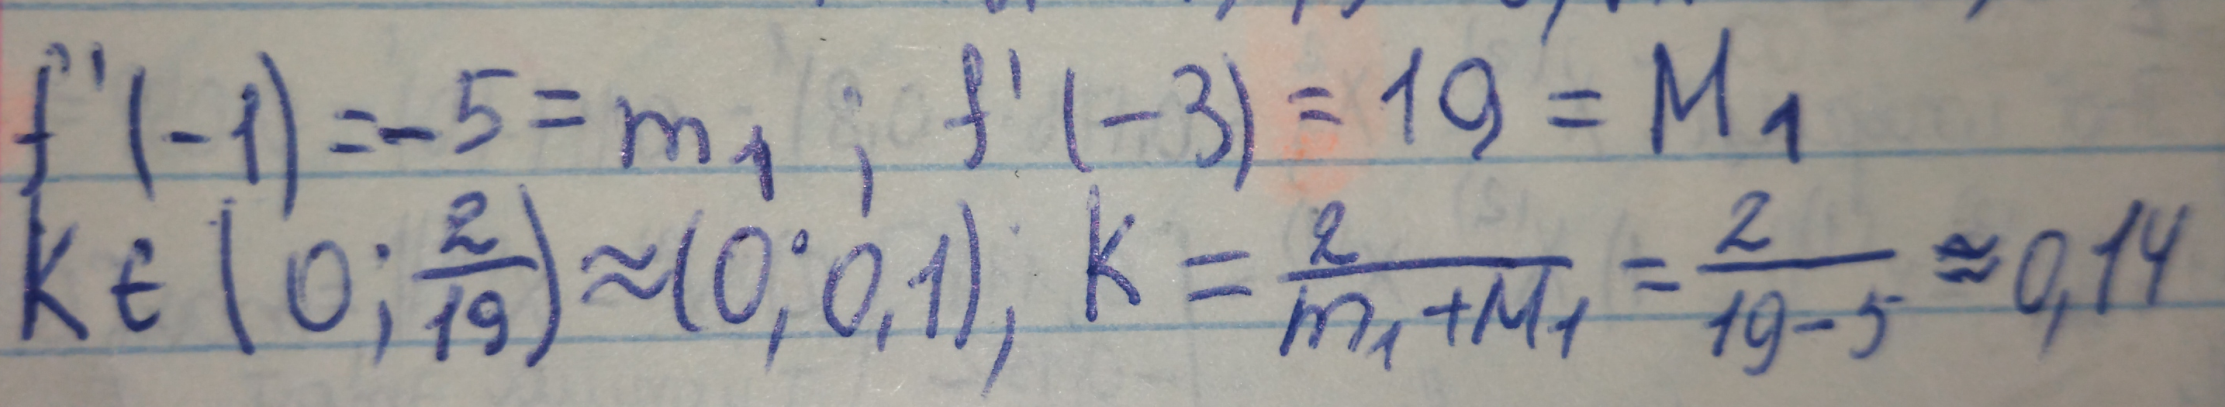 f'(-1)=-5=m₁; f'(-3)=19=M₁
k∈(0;2/19)≈(0;0,1), k=2/(m₁+M₁)=2/(19-5)≈0,14